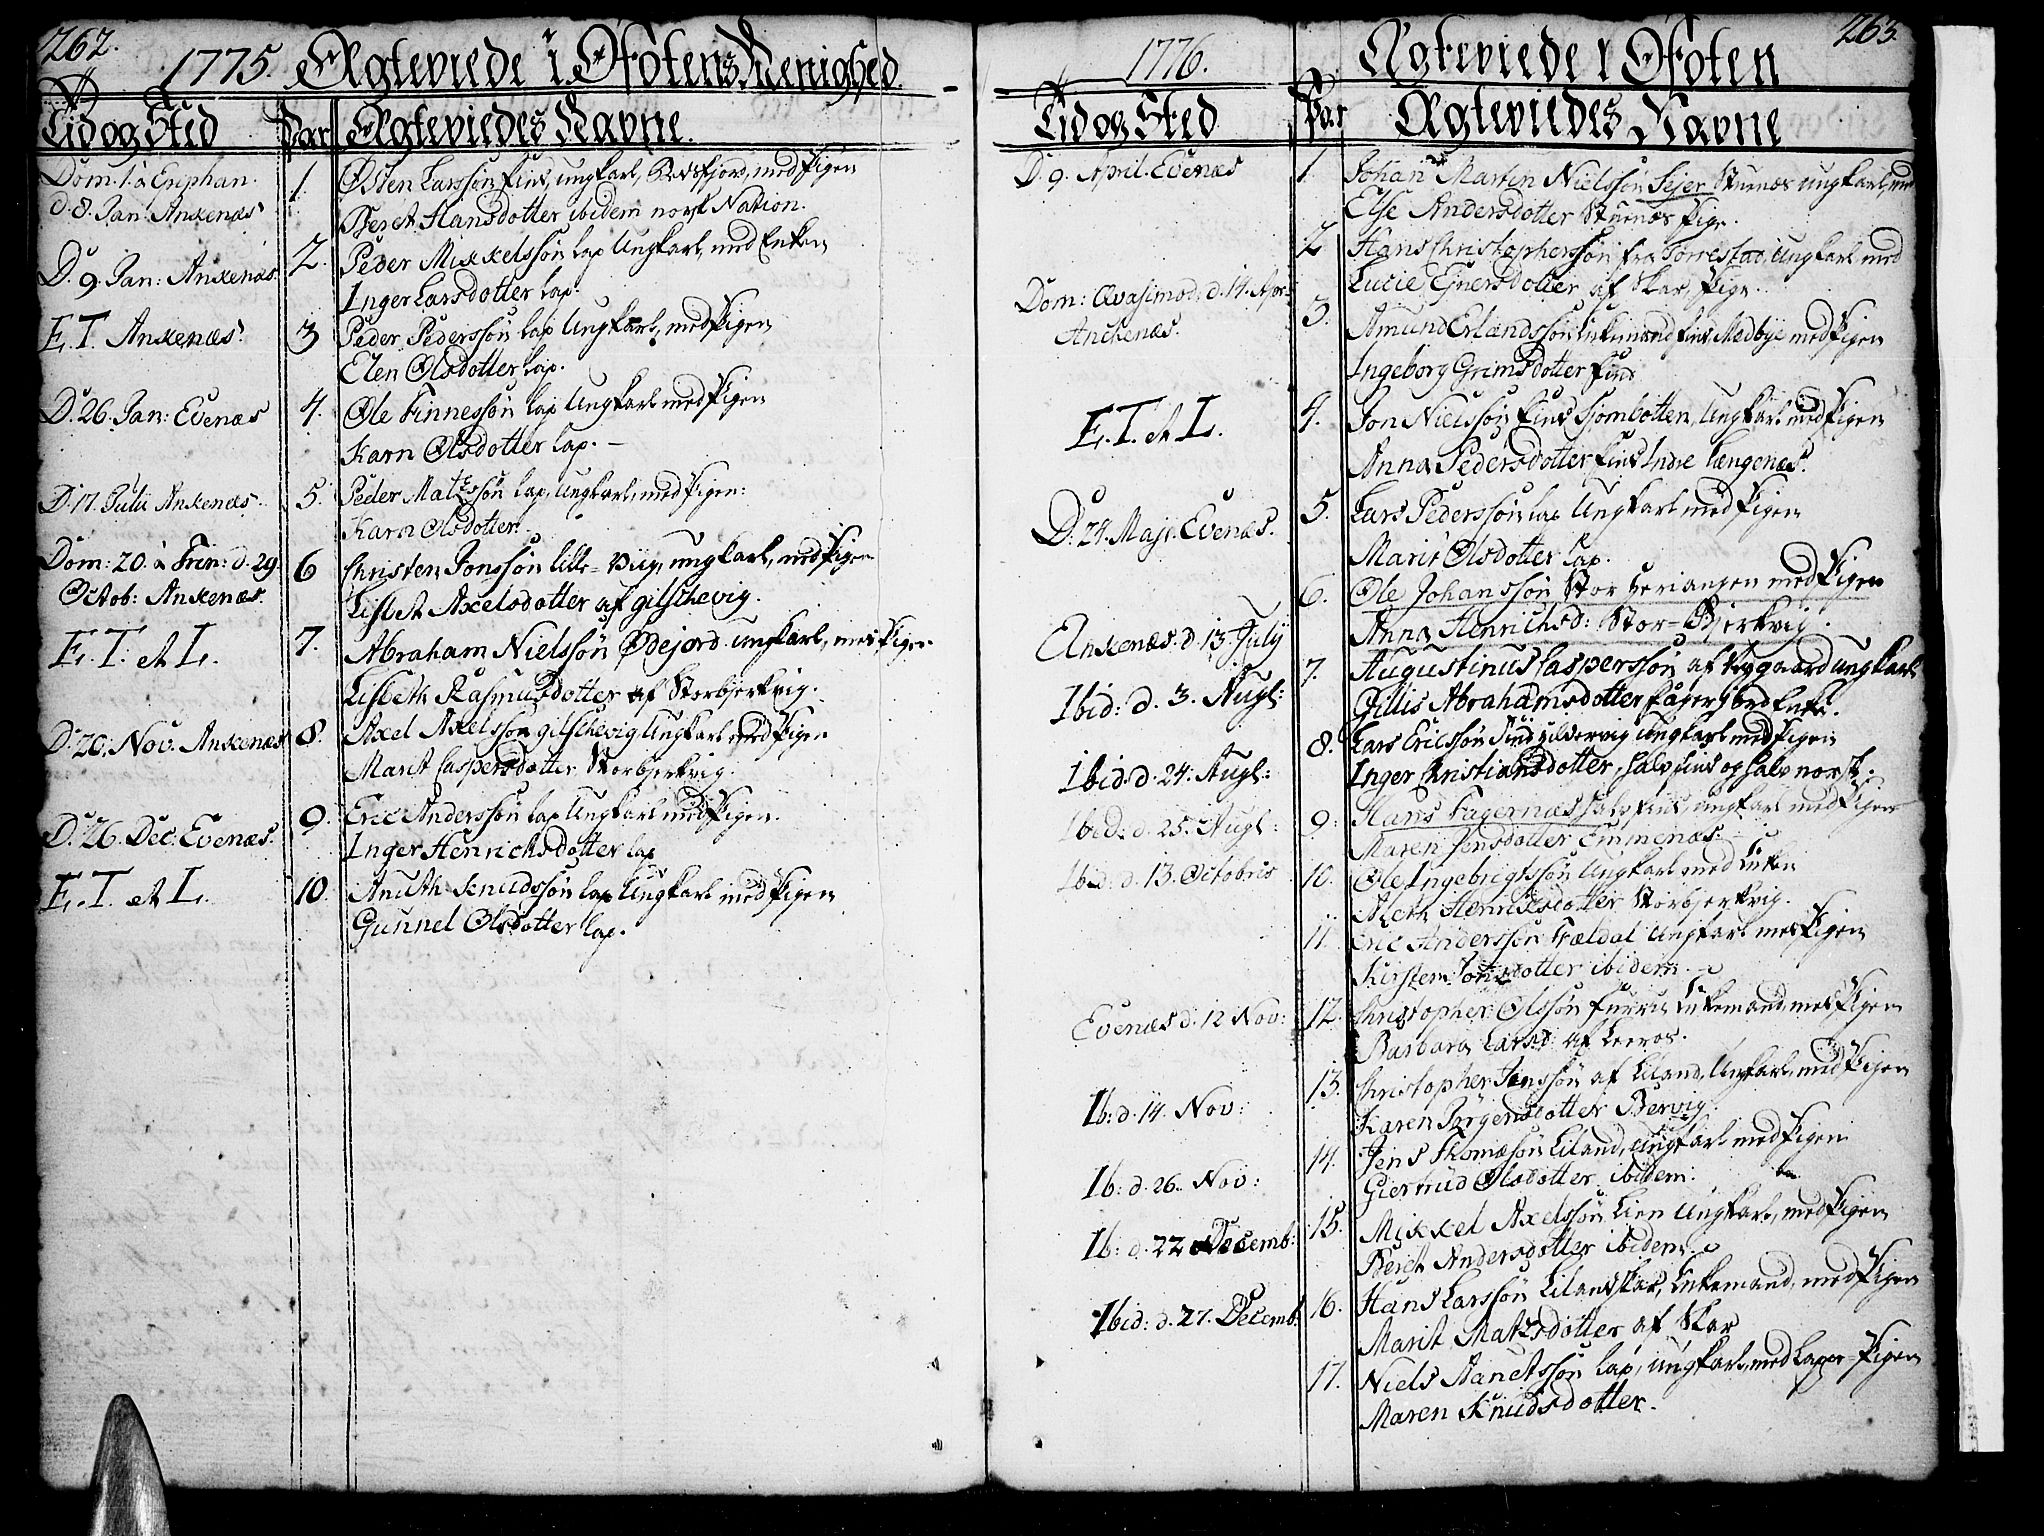 262.
1775. Ægteviede i Ofotens Menighed.
Tid og Sted Par Ægteviedes Navne.
Dom. 1. a Epiphan. 1. Osten Larssøn find, ungkarl, med Pigen
d. 8. Jan: Ankenæs Beret Hansdotter ibidem norsk Nation.
D. 9. Jan: Ankenæs 2. Peder Mikkelssøn lap Ungkarl, med Enken
Inger Larsdotter lap.
E. T. Ankenæs. 3 Peder Pederssøn lap Ungkarl, med Pigen
Elen Olsdotter lap.
D. 26. Jan: Evenæs 4. Ole Finnessøn lap Ungkarl med Pigen
Karn Olsdotter lap. –
D. 17. Julii Ankenæs. 5. Peder Matssøn lap, Ungkarl, med Pigen:
Karn Olsdotter.
Dom: 20. a Trin: d. 29 6 Christen Jonssøn Lille-Viig, ungkarl, med Pigen
Octob: Ankenæs. Lisbet Axelsdotter af gilschevig.
E. T. et L. 7. Abraham Nielssøn Ødejord Ungkarl, med Pigen
Lisbeth Rasmusdotter af Storbjerkvig.
D. 20. Nov. Ankenæs 8. Axel Axelssøn gilschevig Ungkarl med Pigen
Marit Caspersdotter Storbjerkvig.
D. 26. Dec. Evenæs. 9. Eric Anderssøn lap Ungkarl med Pigen.
Inger Henrichsdotter lap
E. T. et L. 10. Anuth Knudssøn lap Ungkarl med Pigen
Gunnel Olsdotter lap.
263.
1776. Ægteviede i Ofoten
Tid og Sted Par Ægteviedes Navne
D. 9. April. Evenæs 1. Johan Martin Nielssøn Fejer Stunæs ungkarl, med
Else Andersdotter Stunæs Pige.
2 Hans Christopherssøn fra Torrestad, Ungkarl med
Lucie Ejnersdotter af Skar, Pige.
Dom: Qvasimod: d. 14. Apr: 3. Amund Erlandssøn Enkemand find, Medbye med Pigen
Anckenæs. Ingeborg Grimsdotter find
E. T. et L. 4. Jon Nielssøn find Sjombotten, Ungkarl med Pigen
Anna Pedersdotter find Indre Længenæs.
D. 24. Maji. Evenæs. 5. Lars Pederssøn lap Ungkarl med Pigen
Marit Olsdotter lap.
6. Ole Johanssøn Stor heriangen med Pigen
Ankenæs. d. 13. July Anna Henrichsd: Stor-Bjerkvig.
Ibid: d. 3. Augl: 7. Augustinus Casperssøn af Nygaard ungkarl
Gillis Abrahamsdotter Enke.
Ibid. d. 24. Augl: 8. Lars Ericssøn find ungkarl med Pigen
Inger Christiansdotter, halv find og halv norsk.
Ibid: d. 25. Augl: 9. Hans Fagernæs halv find ungkarl med Pigen
Maren Jonsdotter Emmenæs.
Ibid: d. 13. Octobris 10. Ole Ingebrigtssøn Ungkarl med Enken
Aleth Henricsdotter Storbjerkvig.
11. Eric Anderssøn Trældal Ungkarl med Pigen
Kirsten Jonsdotter ibidem.
Evenæs d. 12 Nov: 12. Christopher Olssøn Enkemand, med Pigen
Barbara Larsd: af Leeros.
13. Christopher Jonssøn af Liland, Ungkarl, med Pigen
Ib: d. 14. Nov: Karen Jørgensdotter Bervig.
14. Jens Thomæsøn Liland, Ungkarl med Pigen
Ib: d. 26. Nov: Giertrud Olsdotter ibidem.
Ib: d. 22 Decemb: 15. Mikkel Axelssøn Lien Ungkarl, med Pigen
Beret Andersdotter ibidem.
Ibid: d. 27. Decemb. 16. Hans Larssøn Lilandskar, Enkemand, med Pigen
Marit Matsdotter af Skar
17. Niels Aanetssøn lap, ungkarl, med Lappe-Pigen
Maren Knudsdotter.